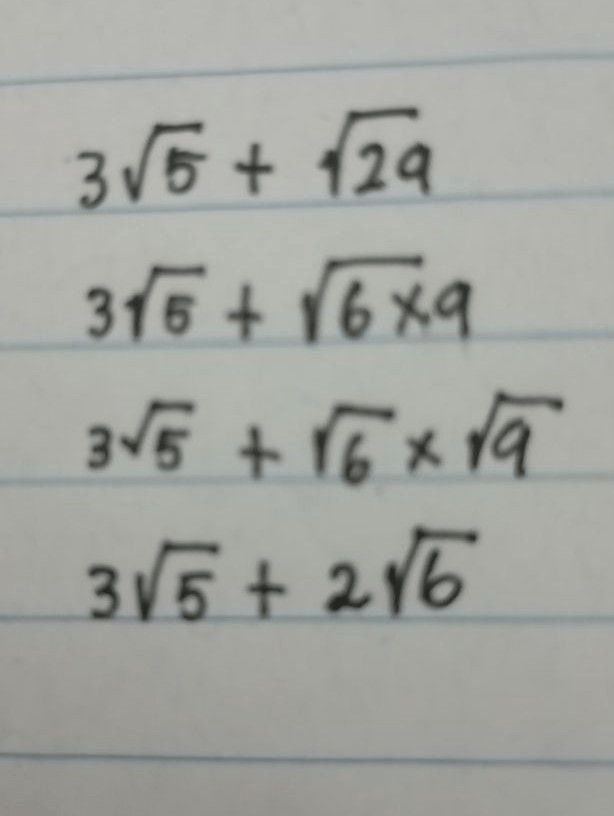 3√5 + √29
3√5 + √6×9
3√5 + √6 × √9
3√5 + 2√6